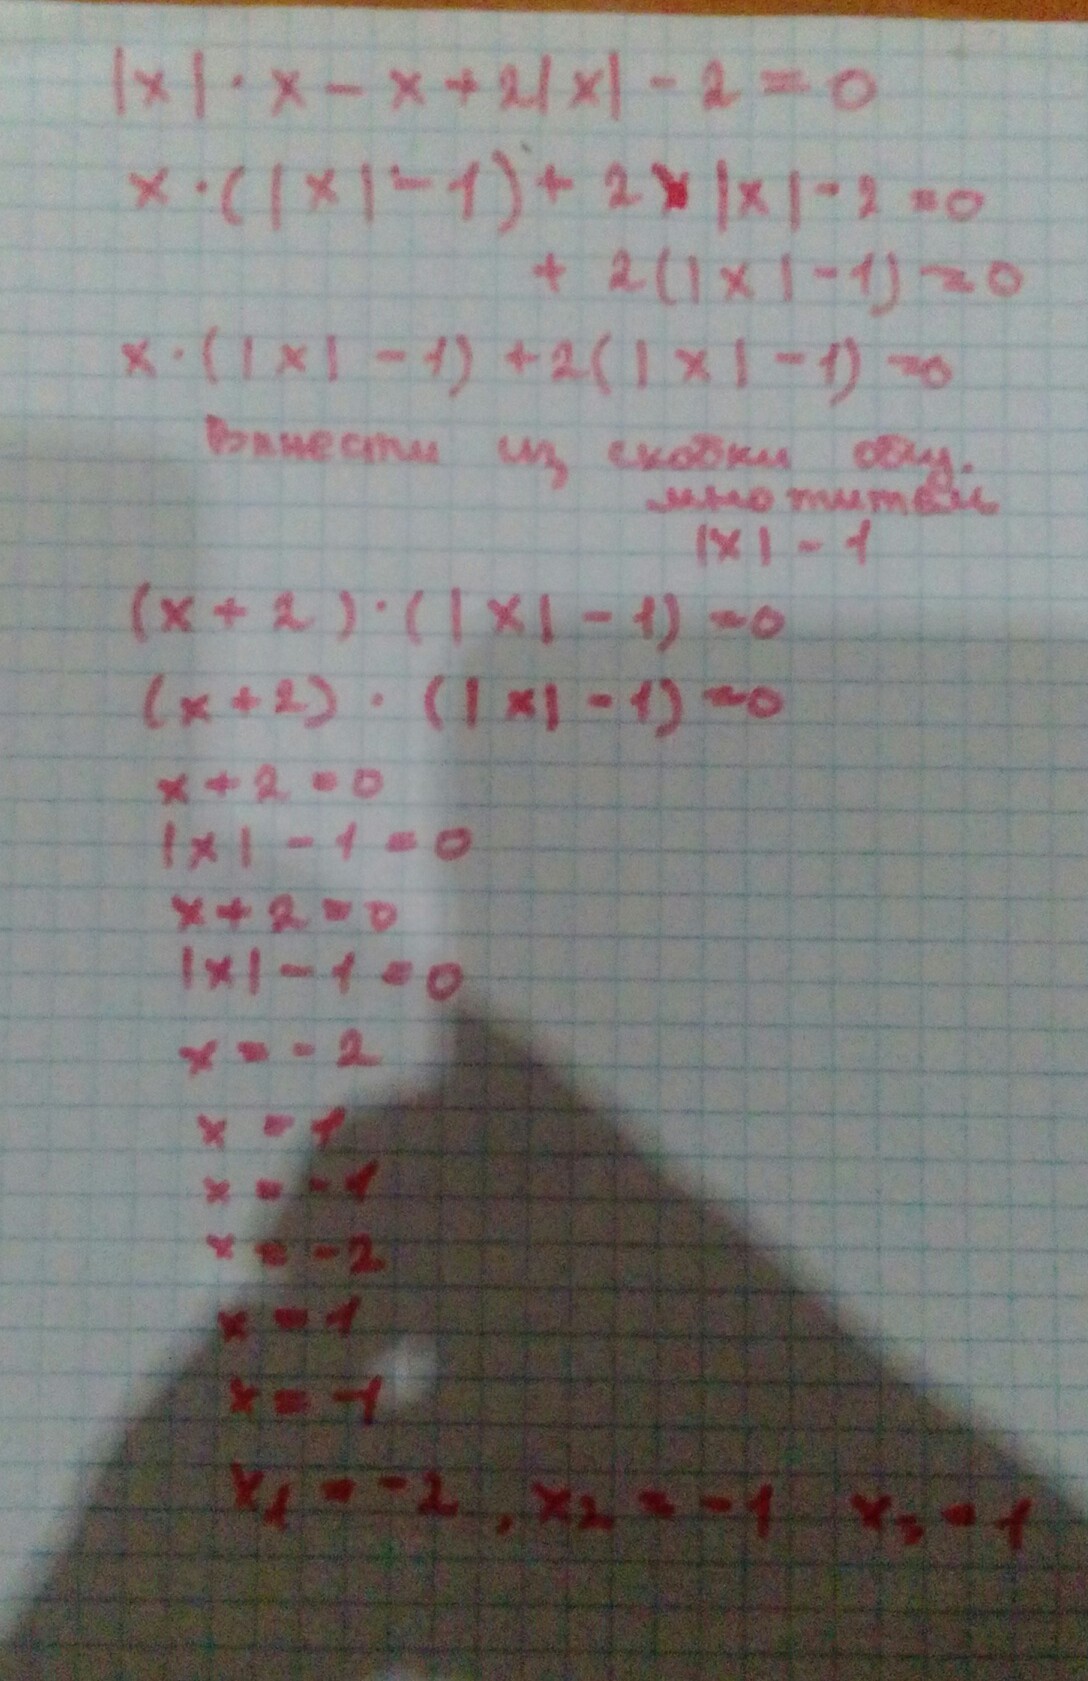 |x| · x - x + 2|x| - 2 = 0
x · (|x| - 1) + 2 |x| - 2 = 0
+ 2(|x| - 1) = 0
x · (|x| - 1) + 2(|x| - 1) = 0
Вынести из скобки общ.
множитель
|x| - 1
(x + 2) · (|x| - 1) = 0
(x + 2) · (|x| - 1) = 0
x + 2 = 0
|x| - 1 = 0
x + 2 = 0
|x| - 1 = 0
x = - 2
x = 1
x = -1
x = -2
x = 1
x = -1
x1 = -2, x2 = -1 x3 = 1